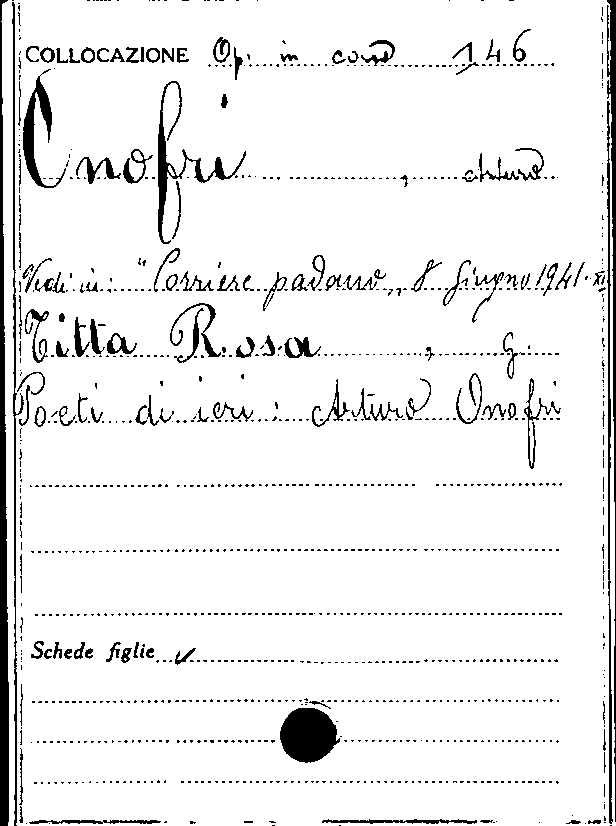 COLLOCAZIONE Op. in corso 146
Onofri, Arturo
Vedi in: "Corriere padano„ 8 Giugno 1941-XIX
Titta Rosa, G.
Poeti di ieri: Arturo Onofri
Schede figlie ✓